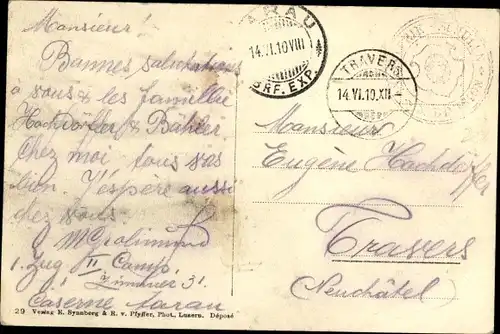 Monsieur!
Bonnes salutations
à vous & les familles
Hochdörfer & Bähler
Chez moi tous vas
bien. J'éspère aussi
chez vous.
1. Zug II Comp.
Zimmer 31.
Caserne Aarau
29 Verlag E. Synnberg & R. v. Pfyffer, Phot., Luzern. Déposé
AARAU
14.VI.10 VIII
BRF. EXP.
TRAVERS
14.VI.10.XII
Monsieur
Eugène Hochdörfer
Travers
(Neuchâtel)